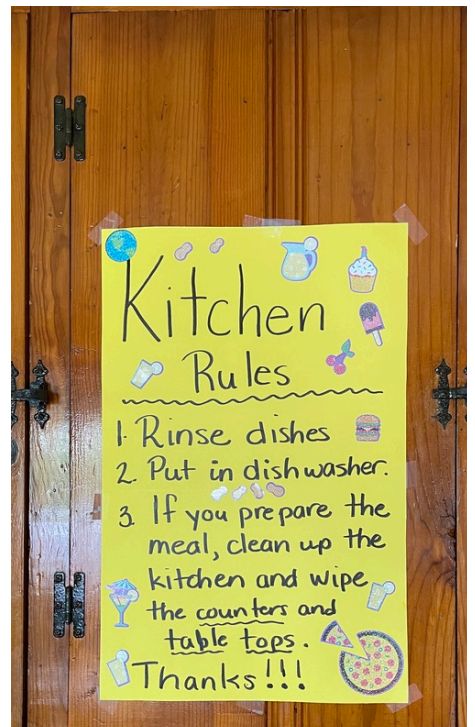 Kitchen
Rules
1. Rinse dishes
2. Put in dishwasher.
3. If you prepare the
meal, clean up the
kitchen and wipe
the counters and
table tops.
Thanks!!!